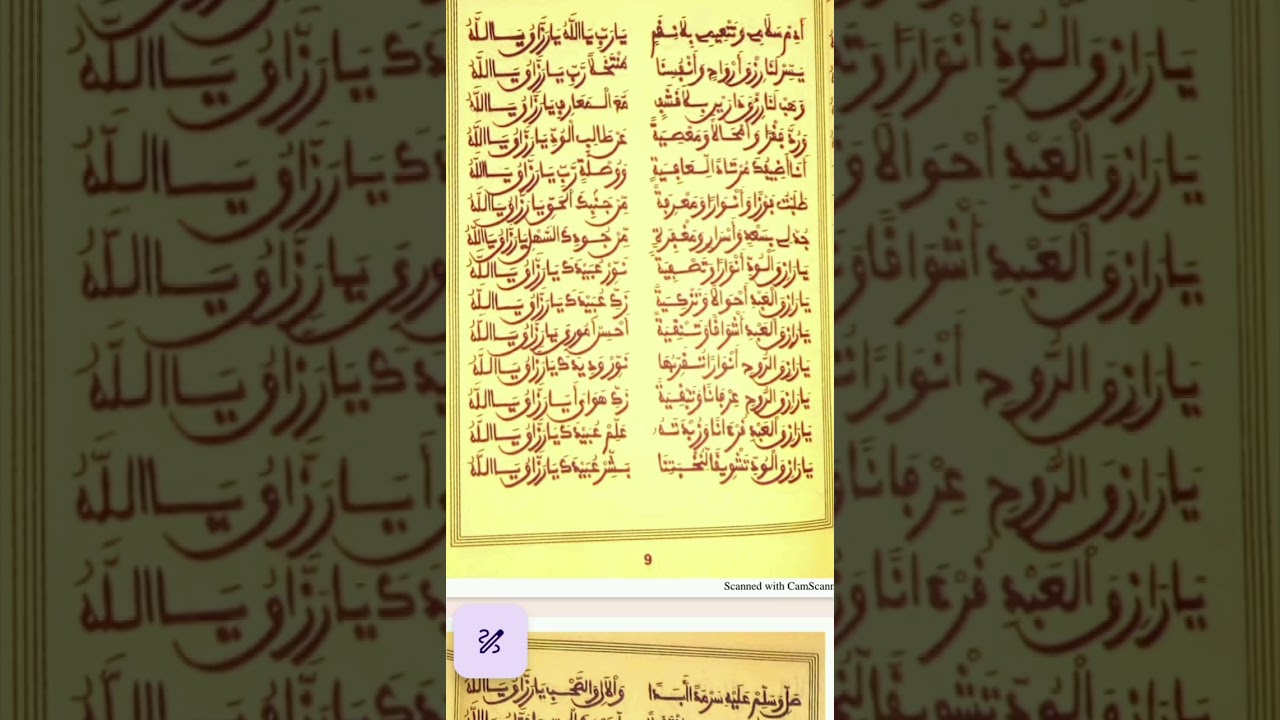 أَدِمْ سَلَامِي وَتَنْعِيمِي بِلَا نِقَمٍ يَارَبِّ يَا اَللَّهُ يَارَزَّاقُ يَا اَللَّهُ
يَسِّرْ لَنَا رِزْقَ أَرْوَاحٍ وَأَنْفُسِنَا رَبِّ يَارَزَّاقُ يَا اَللَّهُ
وَهَبْ لَنَا رِزْقَ دَارَيْنِ بِلَا مَعَ الْمَعَارِفِ يَارَزَّاقُ يَا اَللَّهُ
وَرُدَّ فَقْرًا وَإِمْحَالًا وَمَعْصِيَةً عَنْ طَالِبِ الْوُدِّ يَارَزَّاقُ يَا اَللَّهُ
أَنَا مُرْتَادٌ لِعَافِيَةٍ وَوُصْلَةٍ رَبِّ يَارَزَّاقُ يَا اَللَّهُ
طَلَبْتُ وَأَنْوَارًا وَمَعْرِفَةً مِنْ الْحَقِّ يَارَزَّاقُ يَا اَللَّهُ
جُدْ لِي بِسَعْدٍ وَأَسْرَارٍ وَمَغْفِرَةٍ مِنْ جُودِكَ السَّهْلِ يَارَزَّاقُ يَا اَللَّهُ
يَارَازِقَ الْوُدِّ أَنْوَارًا وَتَصْفِيَةً نَوِّرْ عُبَيْدَكَ يَارَزَّاقُ يَا اَللَّهُ
يَارَازِقَ الْعَبْدِ أَحْوَالًا وَتَزْكِيَةً زَكِّ عُبَيْدَكَ يَارَزَّاقُ يَا اَللَّهُ
يَارَازِقَ الْعَبْدِ أَشْوَاقًا وَتَنْقِيَةً أَحْسِنْ أُمُورِي يَارَزَّاقُ يَا اَللَّهُ
يَارَازِقَ الرُّوحِ أَنْوَارًا تُقَرِّبُهَا نَوِّرْ وَدِيدَكَ يَارَزَّاقُ يَا اَللَّهُ
يَارَازِقَ الرُّوحِ عِرْفَانًا زَكِّ هَوَايَ أَيَا رَزَّاقُ يَا اَللَّهُ
يَارَازِقَ الْعَبْدِ قُرْءَانًا وَزُبْدَتَهُ عَلِّمْ عُبَيْدَكَ يَارَزَّاقُ يَا اَللَّهُ
يَارَازِقَ الْوُدِّ تَشْوِيقًا لِنُخْبَتِنَا بَشِّرْ عُبَيْدَكَ يَارَزَّاقُ يَا اَللَّهُ
9
Scanned with CamScann
صَلِّ وَسَلِّمْ عَلَيْهِ سَرْمَدًا أَبَدًا وَالْآلِ وَالصَّحْبِ يَارَزَّاقُ يَا اَللَّهُ